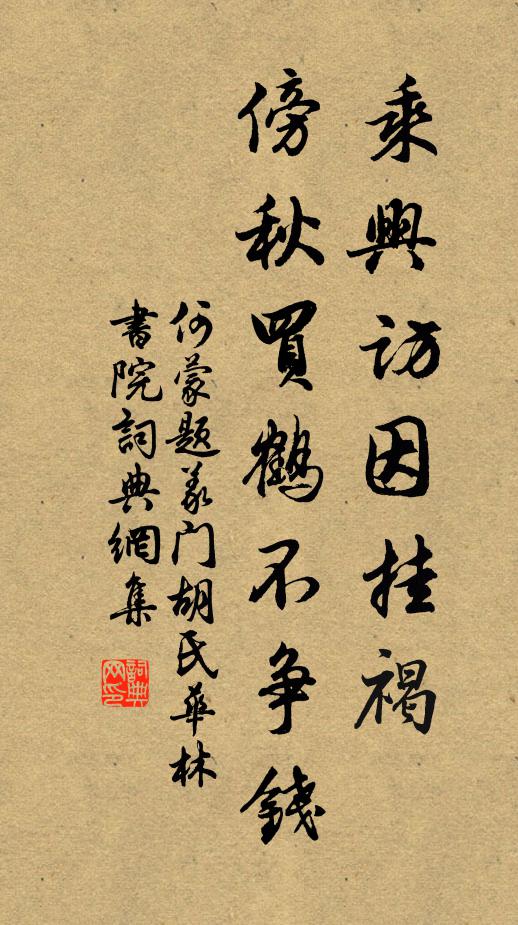 乘興訪因挂褐
傍秋買鶴不争錢
何蒙題义门胡氏華林
書院詞典網集
詞典网印